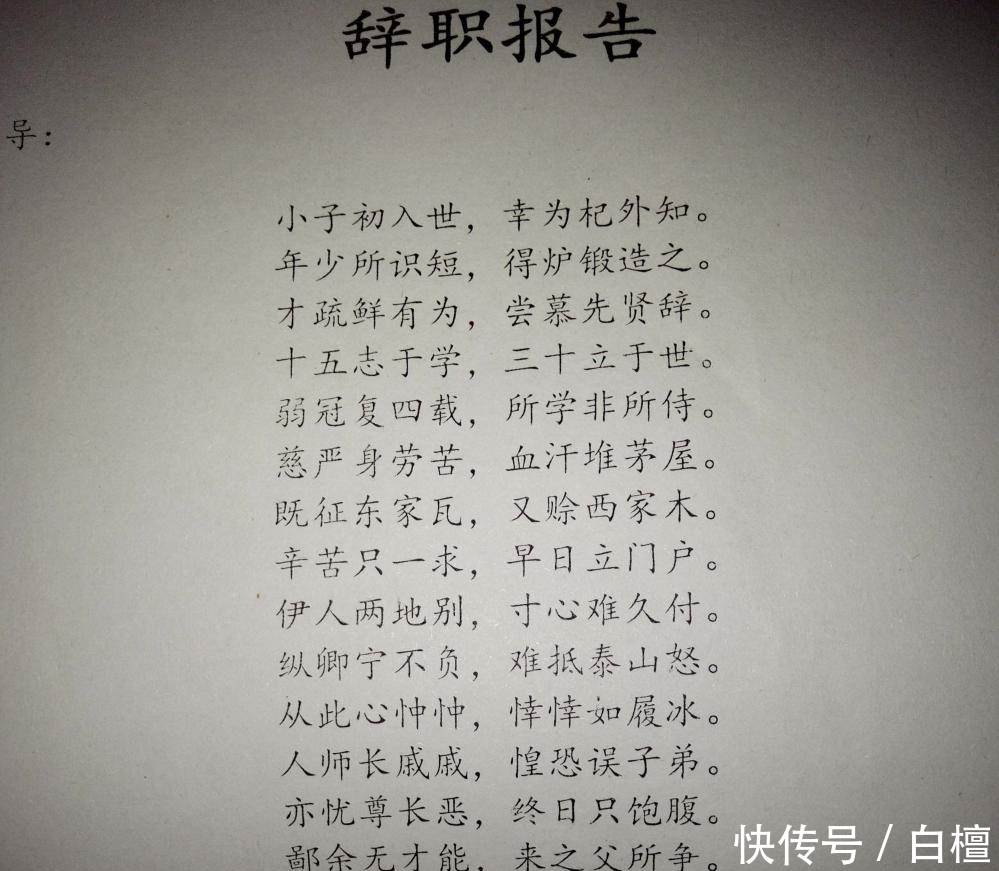 辞职报告
导：
小子初入世，幸为杞外知。
年少所识短，得炉锻造之。
才疏鲜有为，尝慕先贤辞。
十五志于学，三十立于世。
弱冠复四载，所学非所侍。
慈严身劳苦，血汗堆茅屋。
既征东家瓦，又赊西家木。
辛苦只一求，早日立门户。
伊人两地别，寸心难久付。
纵卿宁不负，难抵泰山怒。
从此心忡忡，悻悻如履冰。
人师长戚戚，惶恐误子弟。
亦忧尊长恶，终日只饱腹。
鄙余无才能，来之父所争。
快传号 / 白檀